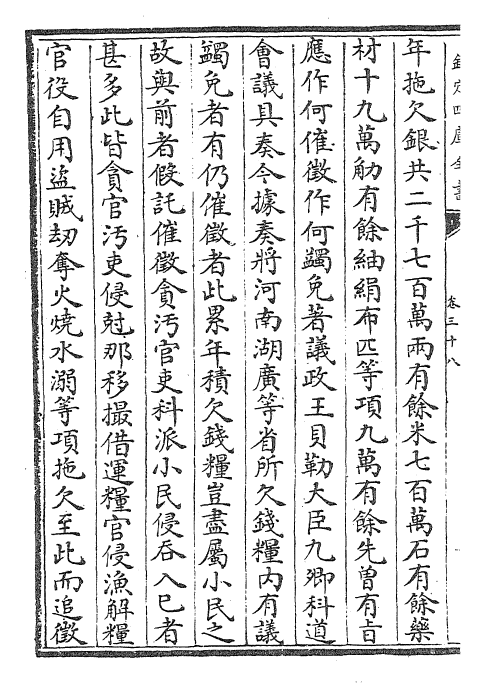 欽定四庫全書
卷三十八
年拖欠銀共二千七百萬兩有餘米七百萬石有餘藥
材十九萬觔有餘紬絹布匹等項九萬有餘先曾有旨
應作何催徵作何蠲免著議政王貝勒大臣九卿科道
會議具奏今據奏將河南湖廣等省所欠錢糧内有議
蠲免者有仍催徵者此累年積欠錢糧豈盡屬小民之
故與前者假託催徵貪汚官吏科派小民侵吞入已者
甚多此皆貪官汚吏侵尅那移撮借運糧官侵漁解糧
官役自用盜賊刼奪火燒水溺等項拖欠至此而追徵